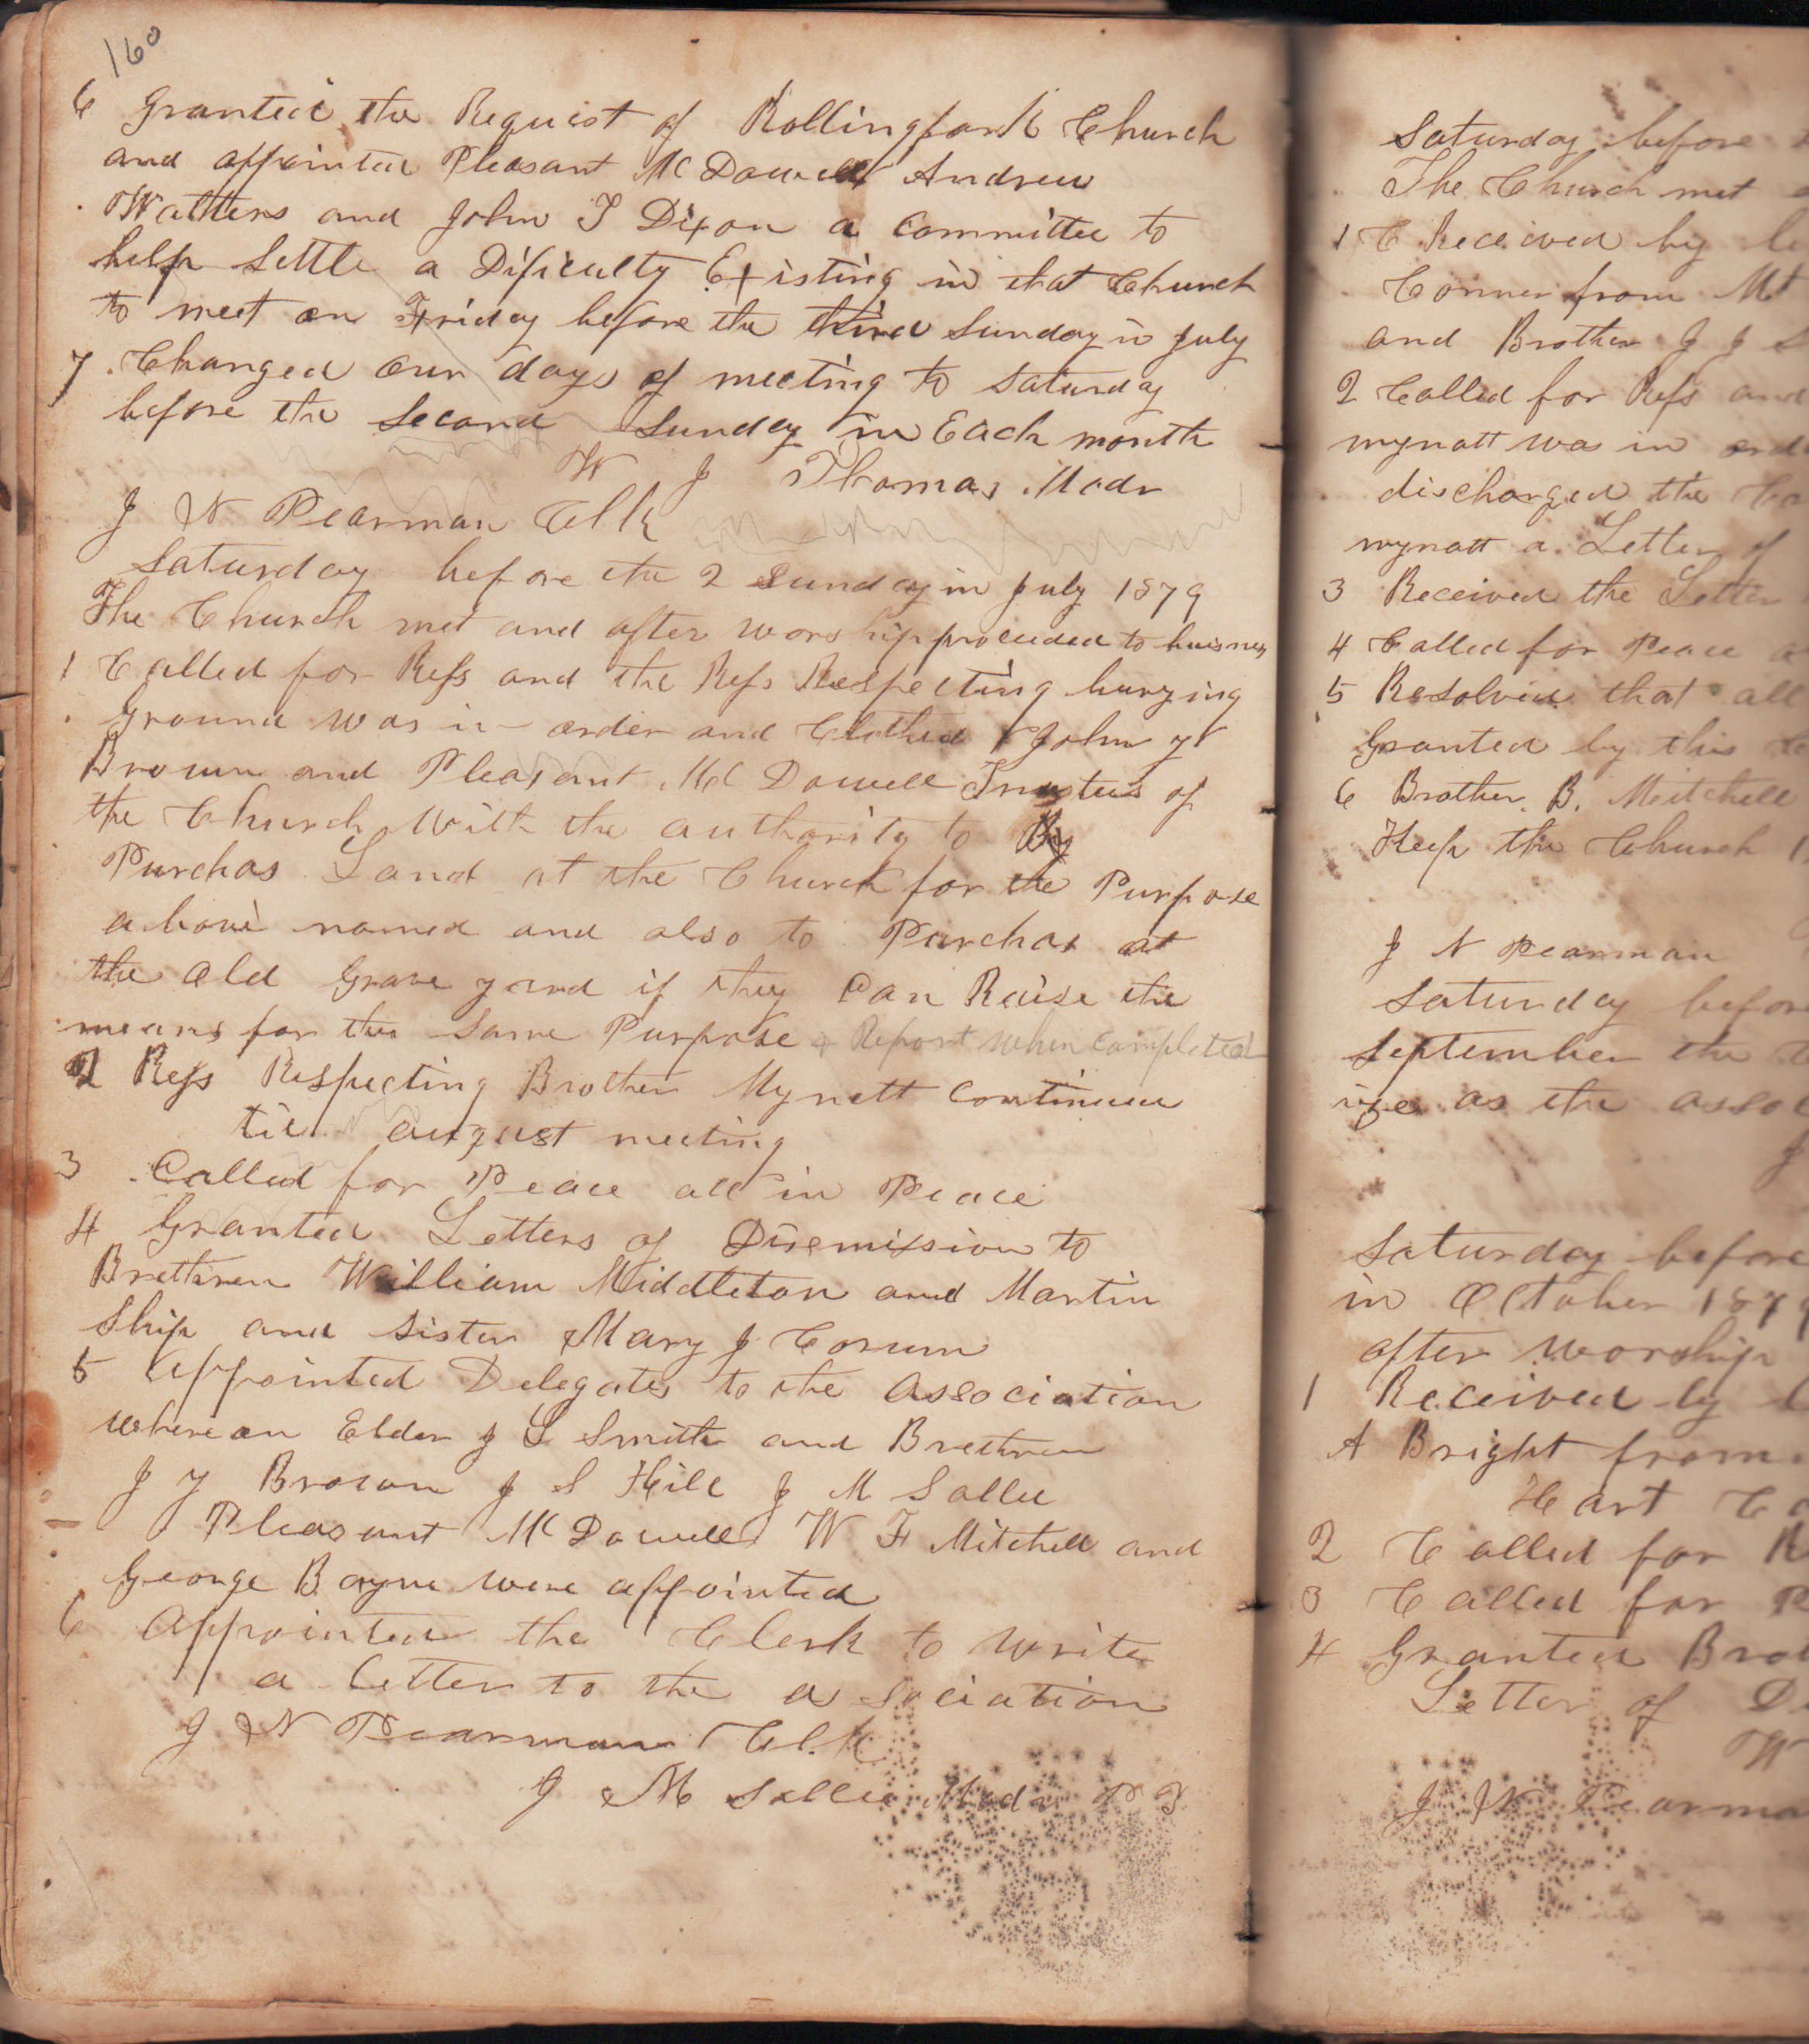 160
6 Granted the Request of Rollingfork Church
and appointed Pleasant McDowell Andrew
Watters and John T Dixon a committee to
help Settle a Dificulty Existing in that Church
to meet on Friday before the third Sunday in July
7 Changed our days of meeting to Saturday
before the Second Sunday in Each month
W J Thomas Modr
J N Pearman Clk
Saturday before the 2 Sunday in July 1879
The Church met and after worship proceeded to buisness
1 Called for Refs and the Refs Respecting burying
ground was in order and Clothed John Y
Brown and Pleasant McDowell Trustees of
the Church With the authority to By
Purchas Land at the Church for the Purpose
above named and also to Purchas at
the old Grave yard if they Can Raise the
means for the Same Purpose & Report when completed
2 Refs Respecting Brother Mynett continued
til august meeting
3 Called for Peace all in Peace
4 Granted Letters of Dismission to
Brethren William Middleton and Martin
Ship and Sister Mary J Corum
5 Appointed Delegates to the association
whereon Elder J S Smith and Brethren
J Y Brown J S Hill J M Sallee
Pleasant McDowell W F Mitchell and
George Bayne were appointed
6 Appointed the Clerk to write
a letter to the asociation
J N Pearman Clk
J M Sallee Modr P T
Saturday before
The Church met
1 C Received by
Conner from Mt
and Brother J J S
2 Called for Refs and
mynatt was in
discharged the
mynatt a Letter of
3 Received the Letter
4 Called for Peace
5 Resolved that all
Granted by this
6 Brother B. Mitchell
Keep the Church
J N Pearman
Saturday before
September the
ize as the
Saturday before
in October 1879
after worship
1 Received by
A Bright from
Hart
2 Called for
3 Called for
4 Granted
Letter of
W
J N Pearman